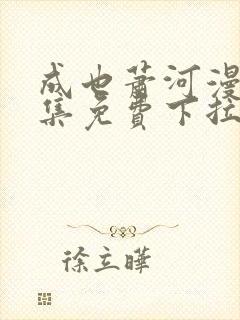 成也萧河漫
集免費下拉
徐立曄